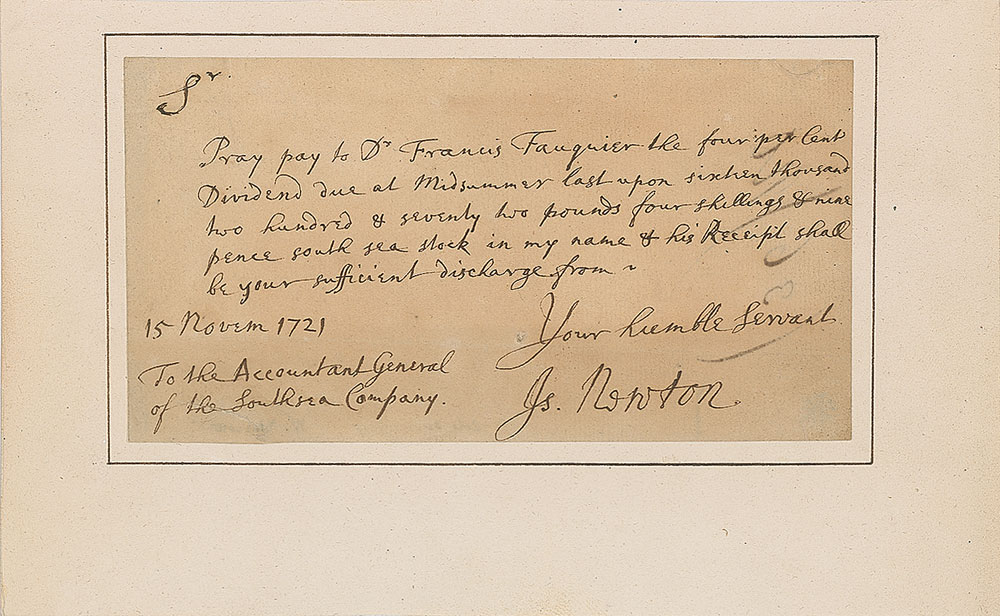 Sr.
Pray pay to Dr Francis Fauquier the four per Cent
Dividend due at Midsummer last upon sixteen thousand
two hundred & seventy two pounds four shillings & nine
pence south sea stock in my name & his Receipt shall
be your sufficient discharge from
Your humble Servant
15 Novem 1721
To the Accountant General
of the Southsea Company.
Is. Newton.